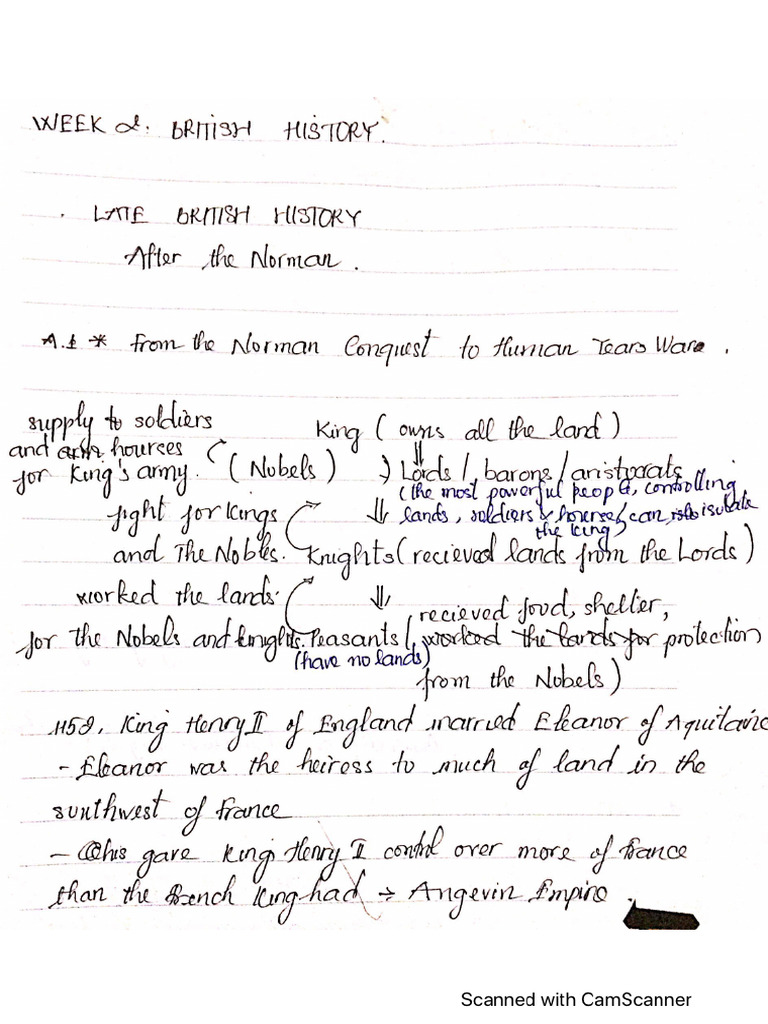 WEEK 2: BRITISH HISTORY.
. LATE BRITISH HISTORY
After the Norman.
A.1 * From the Norman Conquest to Human Tears Ware.
supply to soldiers
and hources
for King's army.
King (owns all the land)
(Nobels) Lords/barons/aristocrats
(the most powerful people, controlling
lands, soldiers & can isulate
the king)
fight for Kings
and The Nobles. Knights (recieved lands from the Lords)
worked the lands.
recieved food, shelter,
for the Nobels and Knights. Peasants (worked the lands for protection
(have no lands)
from the Nobels)
1152, King Henry II of England married Eleanor of Aquitaine
- Eleanor was the heiress to much of land in the
sunthwest of France
- This gave King Henry II control over more of France
than the French King had → Angevin Empire.
Scanned with CamScanner